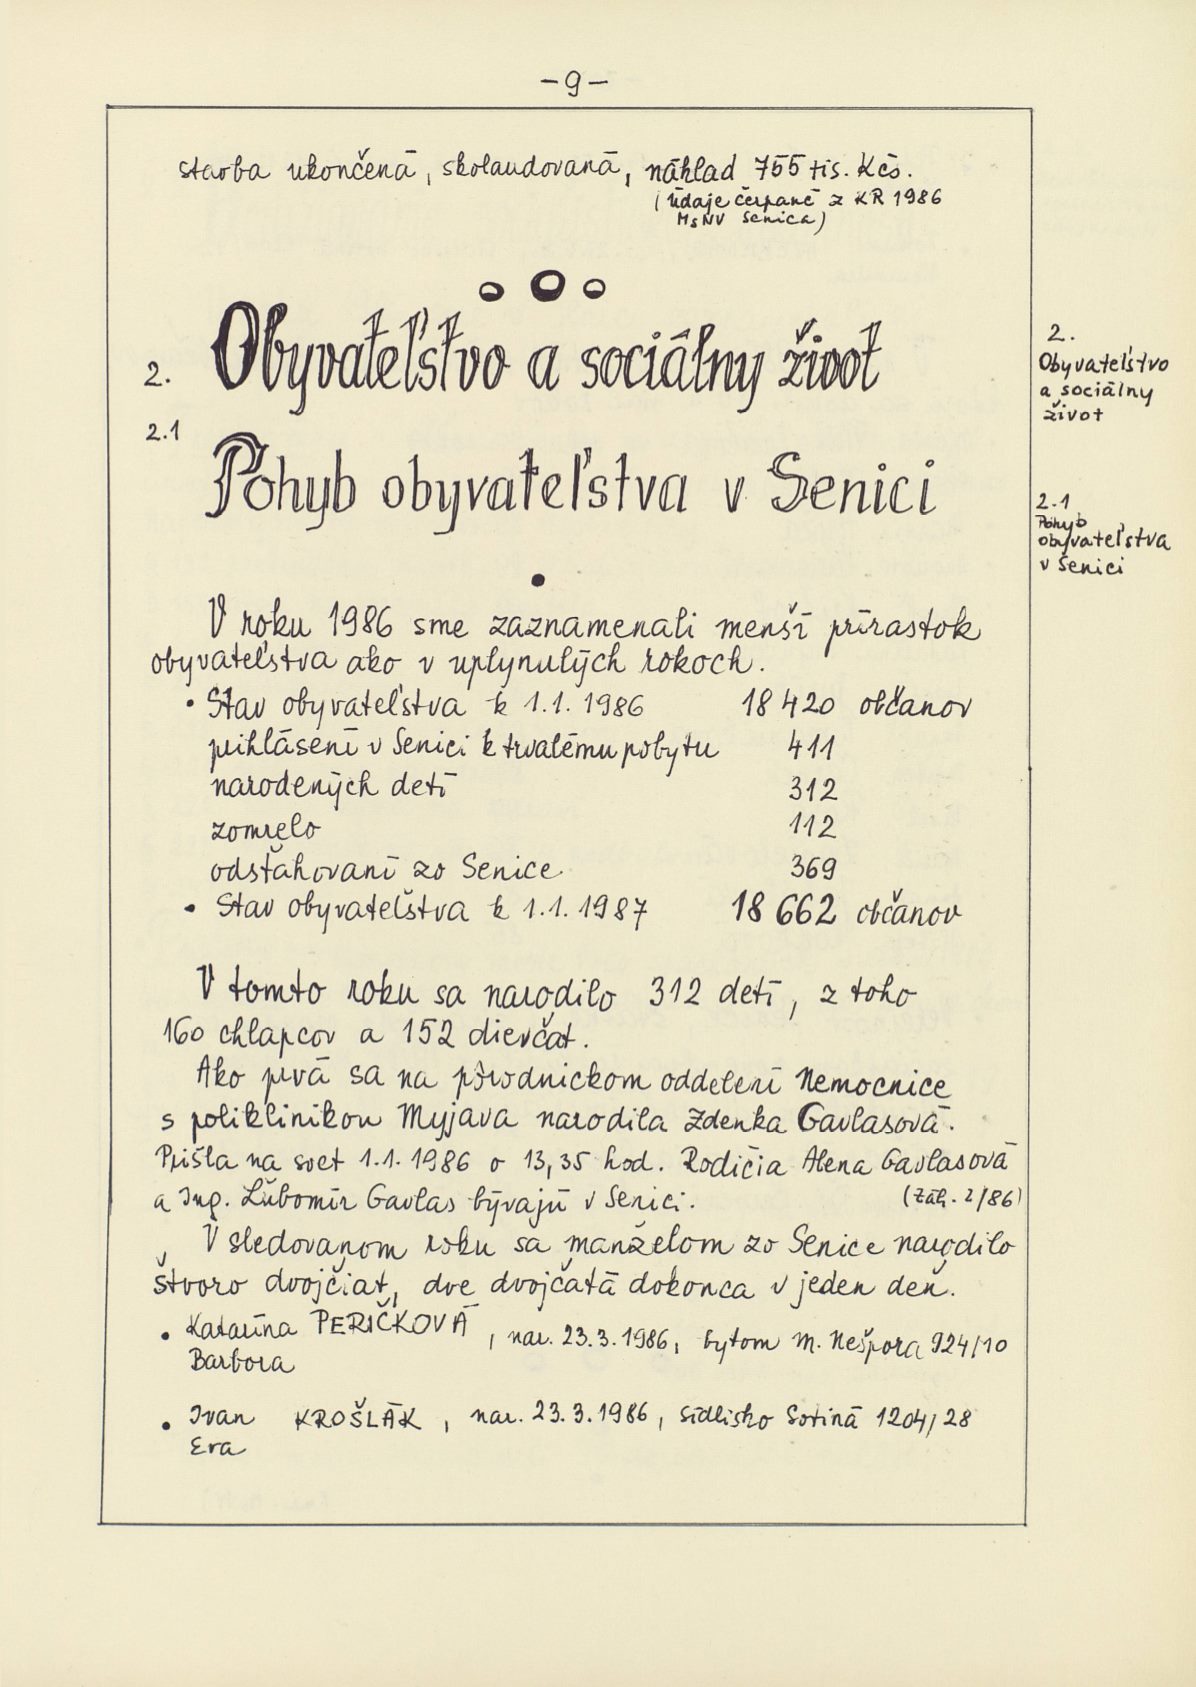 - 9 -
stavba ukončená, skolaudovaná, náklad 755 tis. Kčs.
(údaje čerpané z KR 1986
MsNV Senica)
2. Obyvateľstvo a sociálny život
2.
Obyvateľstvo
a sociálny
život
2.1 Pohyb obyvateľstva v Senici
2.1
Pohyb
obyvateľstva
v Senici
V roku 1986 sme zaznamenali menší prírastok
obyvateľstva ako v uplynulých rokoch.
• Stav obyvateľstva k 1.1. 1986 18 420 občanov
prihlásení v Senici k trvalému pobytu 411
narodených detí 312
zomrelo 112
odsťahovaní zo Senice 369
• Stav obyvateľstva k 1.1. 1987 18 662 občanov
V tomto roku sa narodilo 312 detí, z toho
160 chlapcov a 152 dievčat.
Ako prvá sa na pôrodníckom oddelení Nemocnice
s poliklinikou Myjava narodila Zdenka Gavlasová.
Prišla na svet 1.1. 1986 o 13,35 hod. Rodičia Alena Gavlasová
a Ing. Ľubomír Gavlas bývajú v Senici. (Záh. 2/86)
V sledovanom roku sa manželom zo Senice narodilo
štvoro dvojčiat, dve dvojčatá dokonca v jeden deň.
• Katarína PERIČKOVÁ, nar. 23.3.1986, bytom M. Nešpora 924/10
Barbora
• Ivan KROŠLÁK, nar. 23.3.1986, sídlisko Sotiná 1204/28
Eva